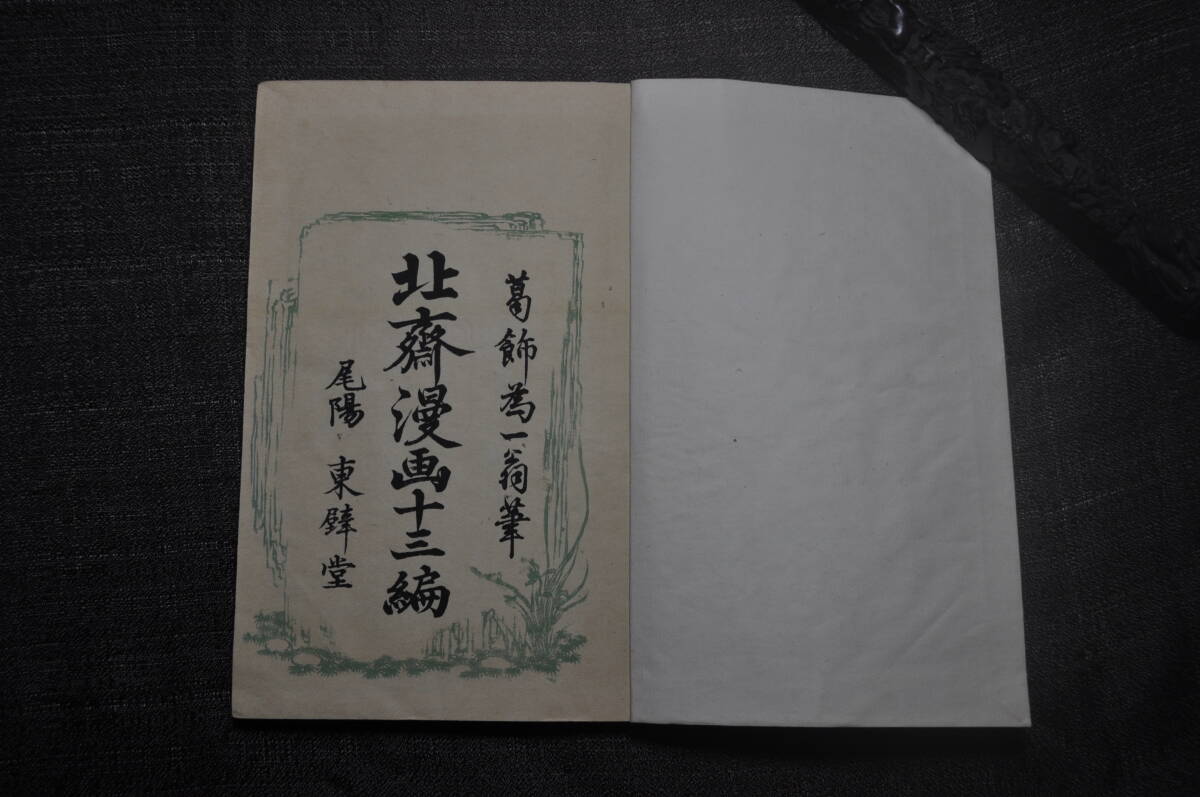 葛飾為一翁筆
北齋漫画十三編
尾陽 東壁堂